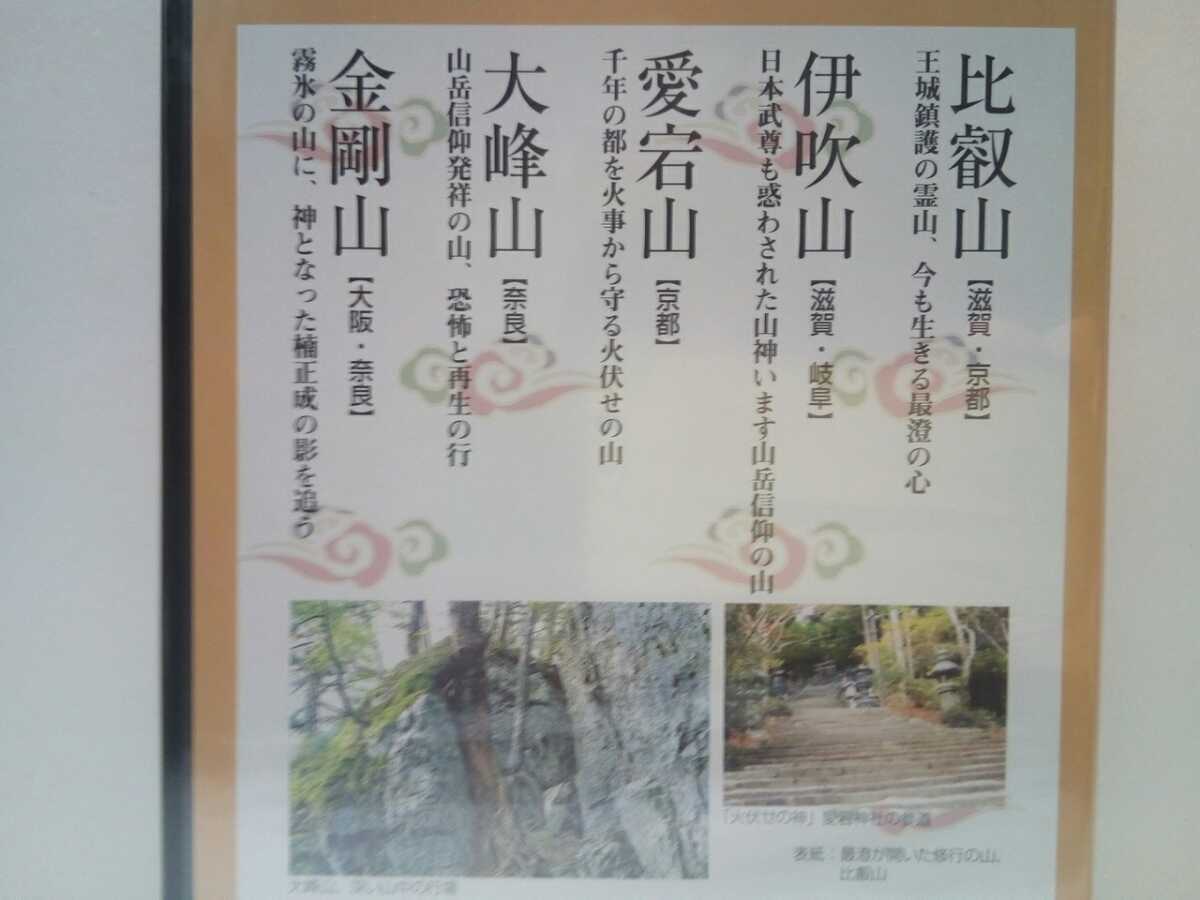 比叡山【滋賀・京都】
王城鎮護の霊山、今も生きる最澄の心
伊吹山【滋賀・岐阜】
日本武尊も惑わされた山神います山岳信仰の山
愛宕山【京都】
千年の都を火事から守る火伏せの山
大峰山【奈良】
山岳信仰発祥の山、恐怖と再生の行
金剛山【大阪・奈良】
霧氷の山に、神となった楠正成の影を追う
「火伏せの神」愛宕神社の参道
表紙：最澄が開いた修行の山、
比叡山
大峰山、深い山中の行場